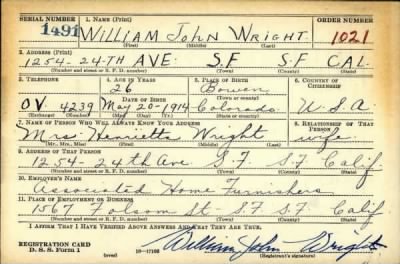 SERIAL NUMBER 1. NAME (Print) ORDER NUMBER
1491 WILLIAM JOHN WRIGHT 1021
(First) (Middle) (Last)
2. ADDRESS (Print)
1254-24TH AVE. S.F. S.F. CAL.
(Number and street or R. F. D. number) (Town) (County) (State)
3. TELEPHONE 4. AGE IN YEARS 5. PLACE OF BIRTH 6. COUNTRY OF CITIZENSHIP
26 Bowen
DATE OF BIRTH (Town or county)
OV. 4239 May-20-1914 Colorado U.S.A.
(Exchange) (Number) (Mo.) (Day) (Yr.) (State or country)
7. NAME OF PERSON WHO WILL ALWAYS KNOW YOUR ADDRESS 8. RELATIONSHIP OF THAT PERSON
Mrs Henrietta Wright wife
(Mr., Mrs., Miss) (First) (Middle) (Last)
9. ADDRESS OF THAT PERSON
1254-24th Ave S.F. S.F. Calif
(Number and street or R. F. D. number) (Town) (County) (State)
10. EMPLOYER'S NAME
Associated Home Furnishers
11. PLACE OF EMPLOYMENT OR BUSINESS
1567 Folsom St. S.F. S.F. Calif.
(Number and street or R. F. D. number) (Town) (County) (State)
I AFFIRM THAT I HAVE VERIFIED ABOVE ANSWERS AND THAT THEY ARE TRUE.
REGISTRATION CARD
D. S. S. Form 1 (over) William John Wright
(Registrant's signature)